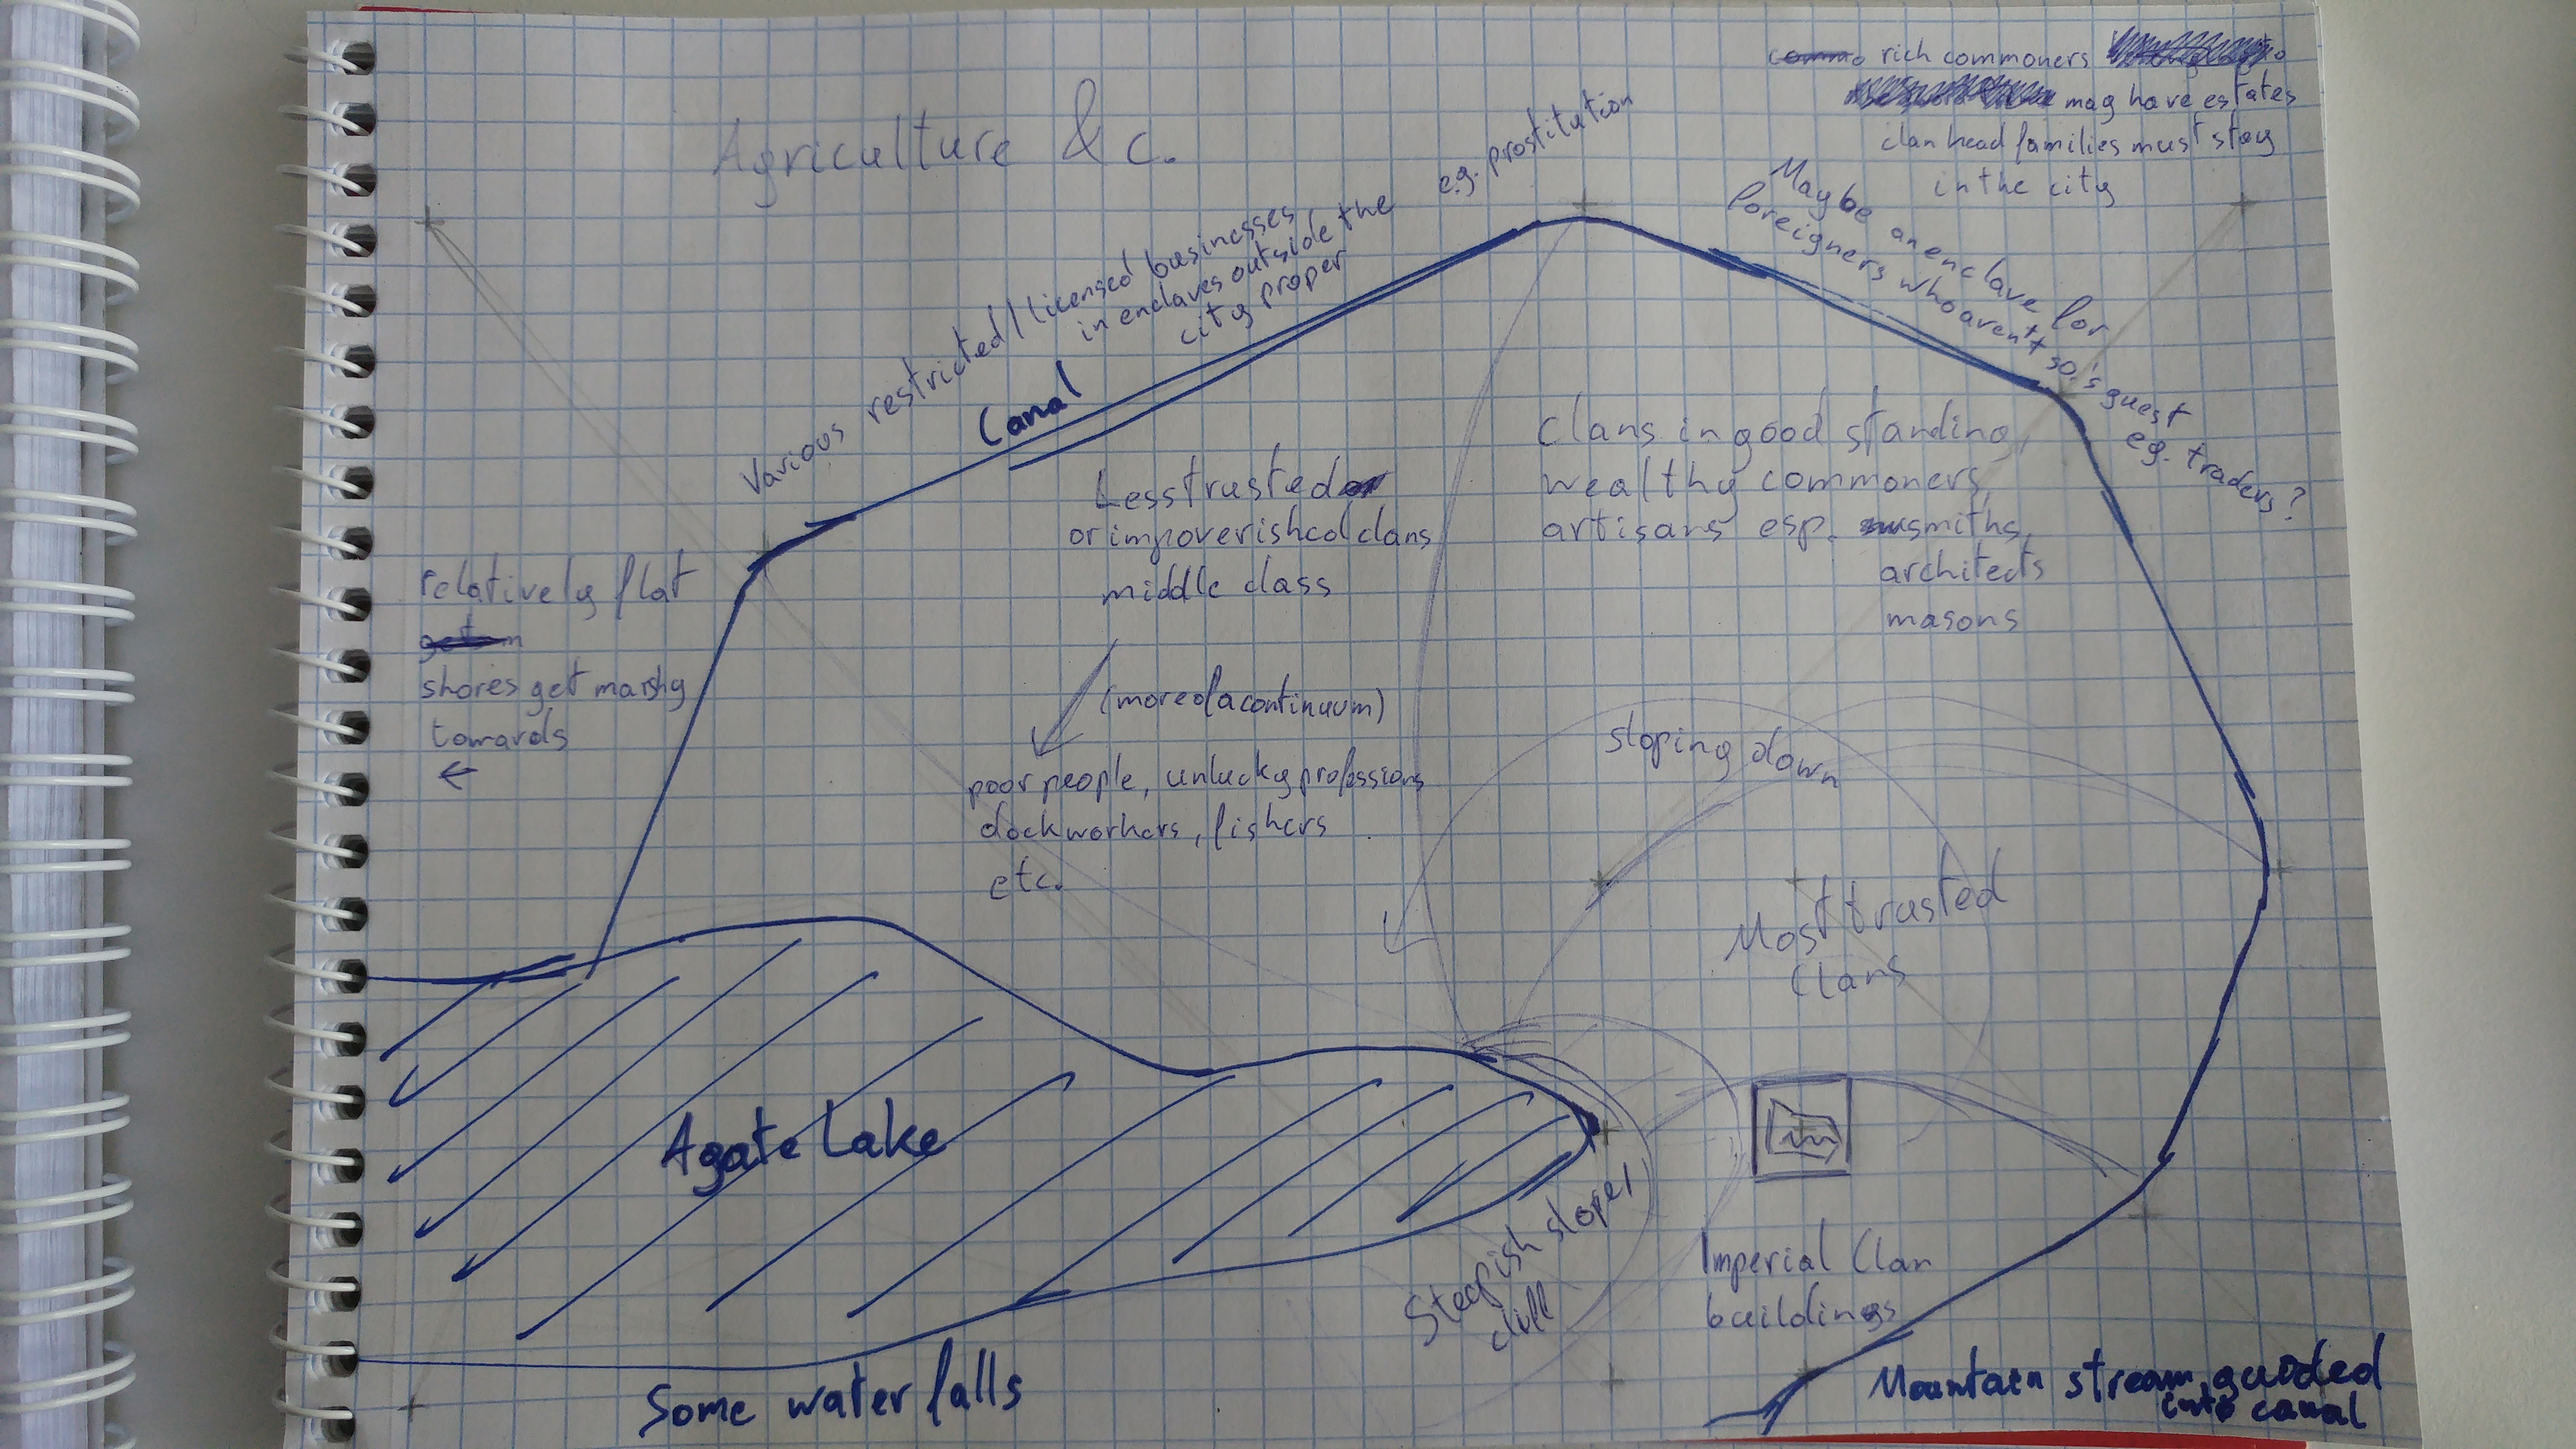 rich commoners
may have estates
clan head families must stay
in the city
Agriculture & c.
e.g. prostitution
Various restricted / licensed businesses
in enclaves outside the
city proper
Maybe an enclave for
foreigners who aren't so.'s guest
e.g. traders?
Canal
Less trusted
or impoverished clans
middle class
Clans in good standing
wealthy commoners,
artisans esp. smiths,
architects
masons
relatively flat
shores get marshy
towards
←
(more of a continuum)
poor people, unlucky professions
dockworkers, fishers
etc.
sloping down
Most trusted
Clans
Agate Lake
Steepish slope/
Imperial Clan
buildings
Some water falls
Mountain stream guided
into canal